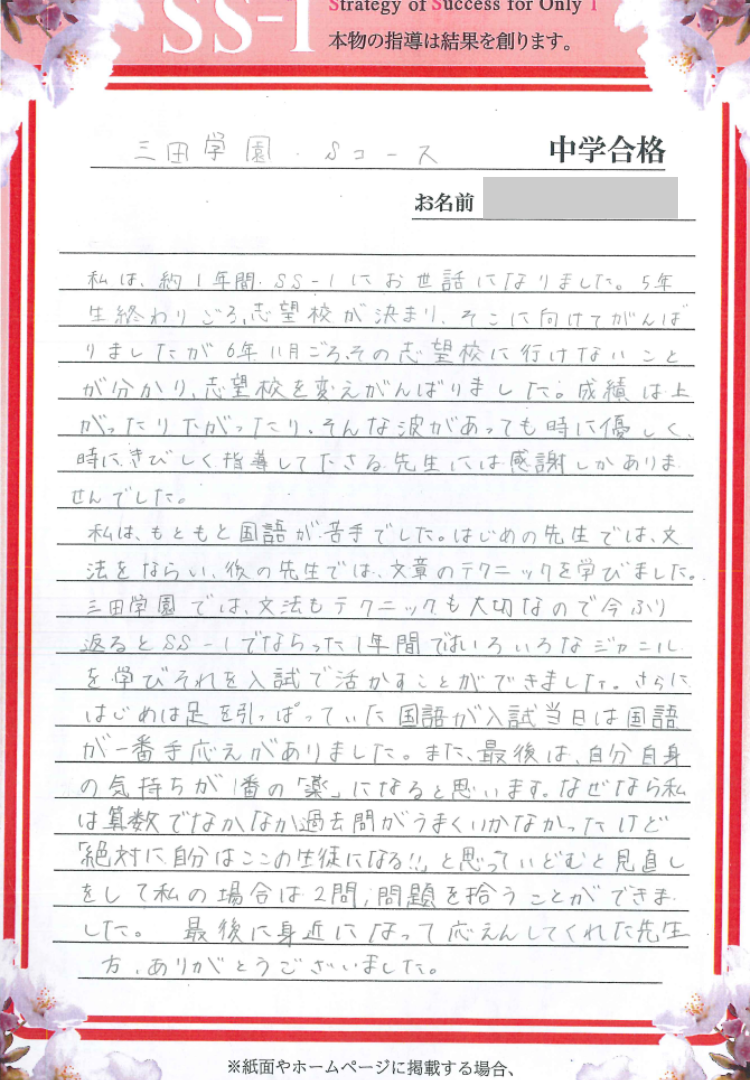 Strategy of Success for Only 1
SS-1
本物の指導は結果を創ります。
三田学園・Sコース 中学合格
お名前
私は、約1年間、SS-1にお世話になりました。5年
生終わりごろ、志望校が決まり、そこに向けてがんば
りましたが6年11月ごろ、その志望校に行けないこと
が分かり、志望校を変えがんばりました。成績は上
がったり下がったり、そんな波があっても時に優しく、
時にきびしく指導して下さる先生には感謝しかありま
せんでした。
私は、もともと国語が苦手でした。はじめの先生では、文
法をならい、後の先生では、文章のテクニックを学びました。
三田学園では、文法もテクニックも大切なので今ふり
返るとSS-1でならった1年間ではいろいろなジャンル
を学びそれを入試で活かすことができました。さらに
はじめは足を引っぱっていた国語が入試当日は国語
が一番手応えがありました。また、最後は、自分自身
の気持ちが1番の「薬」になると思います。なぜなら私
は算数でなかなか過去問がうまくいかなかったけど
「絶対に自分はここの生徒になる!!」と思っていどむと見直し
をして私の場合は2問、問題を拾うことができま
した。 最後に身近になって応えんしてくれた先生
方、ありがとうございました。
※紙面やホームページに掲載する場合、